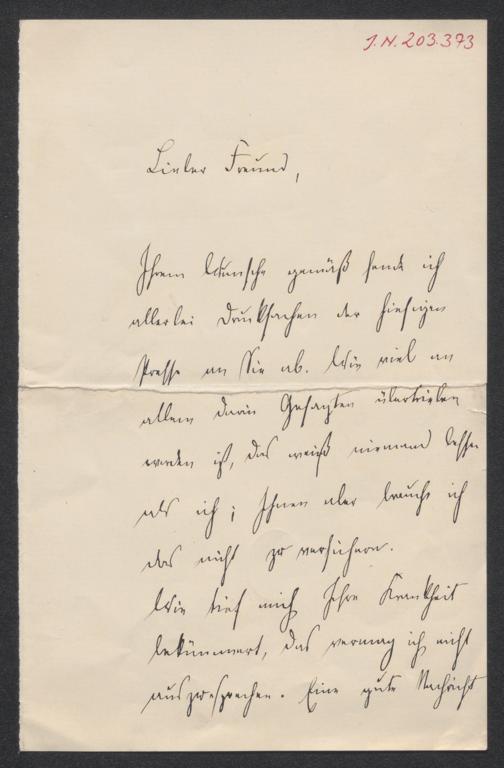 J. N. 203.373
Lieber Freund,
Ihrem Wunsche gemäß sende ich
allerlei Drucksachen der hiesigen
Presse an Sie ab. Wie viel an
allem darin Gesagten übertrieben
worden ist, das weiß niemand besser
als ich; Ihnen aber brauche ich
das nicht zu versichern.
Wie tief mich Ihre Krankheit
bekümmert, das vermag ich nicht
auszusprechen. Eine gute Nachricht